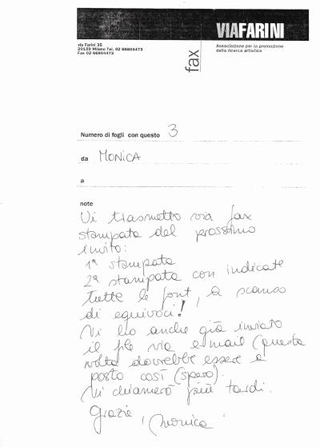 VIAFARINI
via Farini 35
20159 Milano Tel. 02 66804473
Fax 02 66804473
fax
Associazione per la promozione
della ricerca artistica
Numero di fogli con questo 3
da MONICA
a
note
Vi trasmetto via fax
stampata del prossimo
invito:
1ª stampata
2ª stampata con indicate
tutte le font, a scanso
di equivoci!
Vi ho anche già inviato
il file via e-mail (questa
volta dovrebbe essere a
posto così (spero).
Vi chiamerò più tardi.
Grazie, Monica